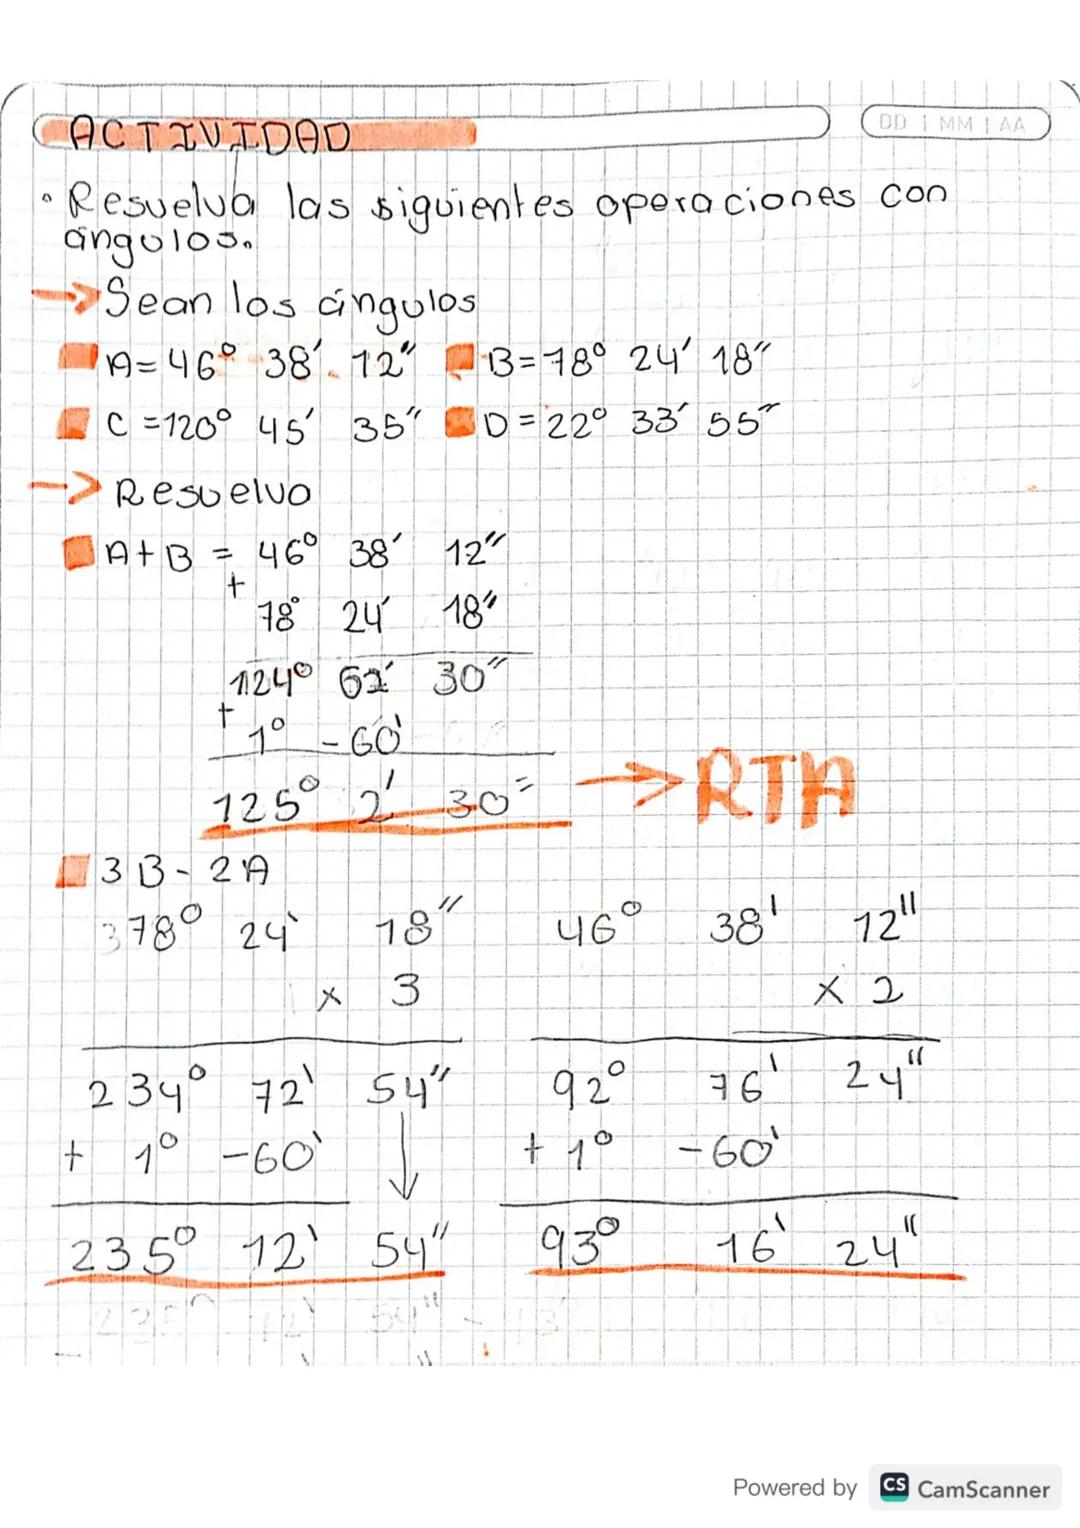 ACTIVIDAD
DD | MM | AA
• Resuelva las siguientes operaciones con
ángulos.
→ Sean los ángulos
A= 46° 38' 12" B= 78° 24' 18"
C =120° 45' 35" D = 22° 33' 55"
--> Resuelvo
A+B = 46° 38' 12"
+
78° 24' 18"
124° 62' 30"
+
1° -60'
125° 2' 30" → RTA
3B - 2A
3 78° 24' 18" 46° 38' 12"
x 3 x 2
234° 72' 54" 92° 76' 24"
+ 1° -60' + 1° -60'
235° 12' 54" 93° 16' 24"
Powered by CS CamScanner